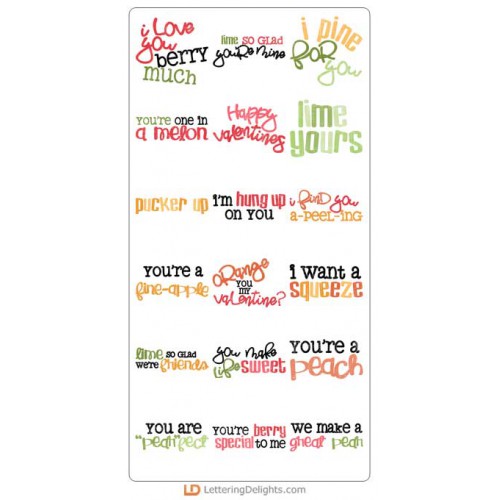 i Love
you
berry
much
lime so glad
you're mine
i pine
for
you
you're one in
a melon
Happy
valentines
lime
yours
pucker up
i'm hung up
on you
i find you
a-peel-ing
you're a
fine-apple
orange
you
my
valentine?
i want a
squeeze
lime so glad
we're friends
you make
life sweet
you're a
peach
you are
"pear"fect
you're berry
special to me
we make a
great pear
LD LetteringDelights.com